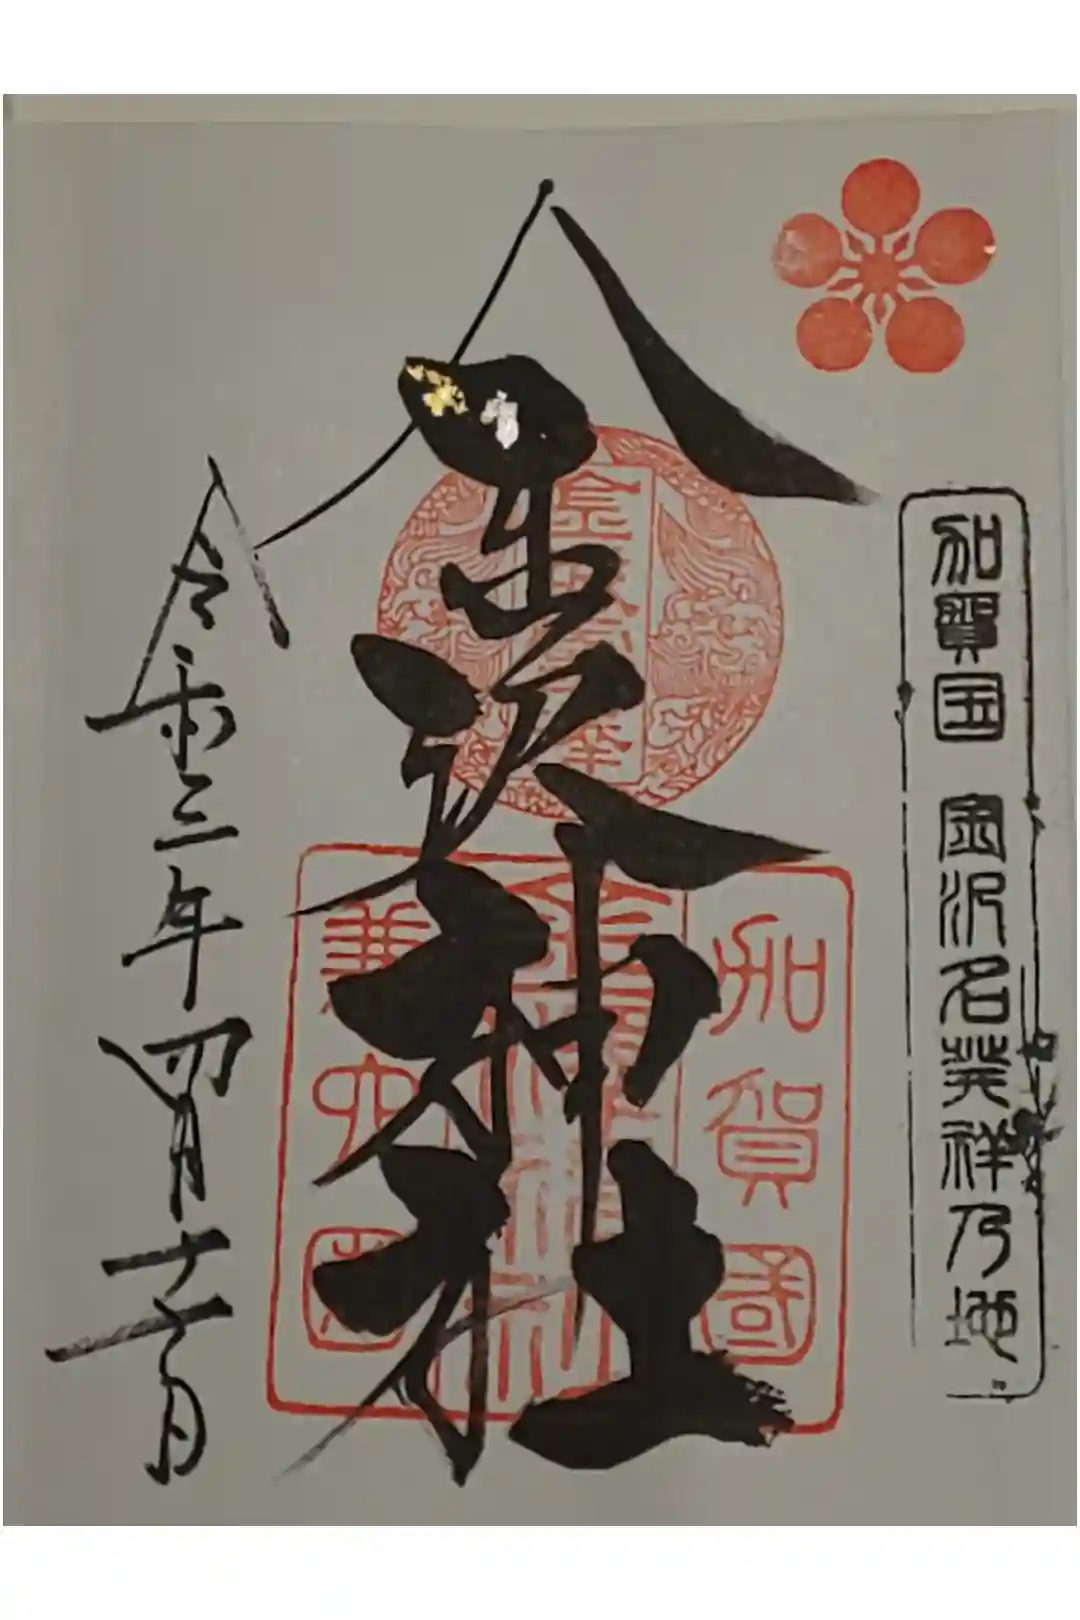 加賀国 金沢名発祥乃地
金沢神社
金城霊澤
加賀國
金澤神社
兼六園
令和三年四月十六日